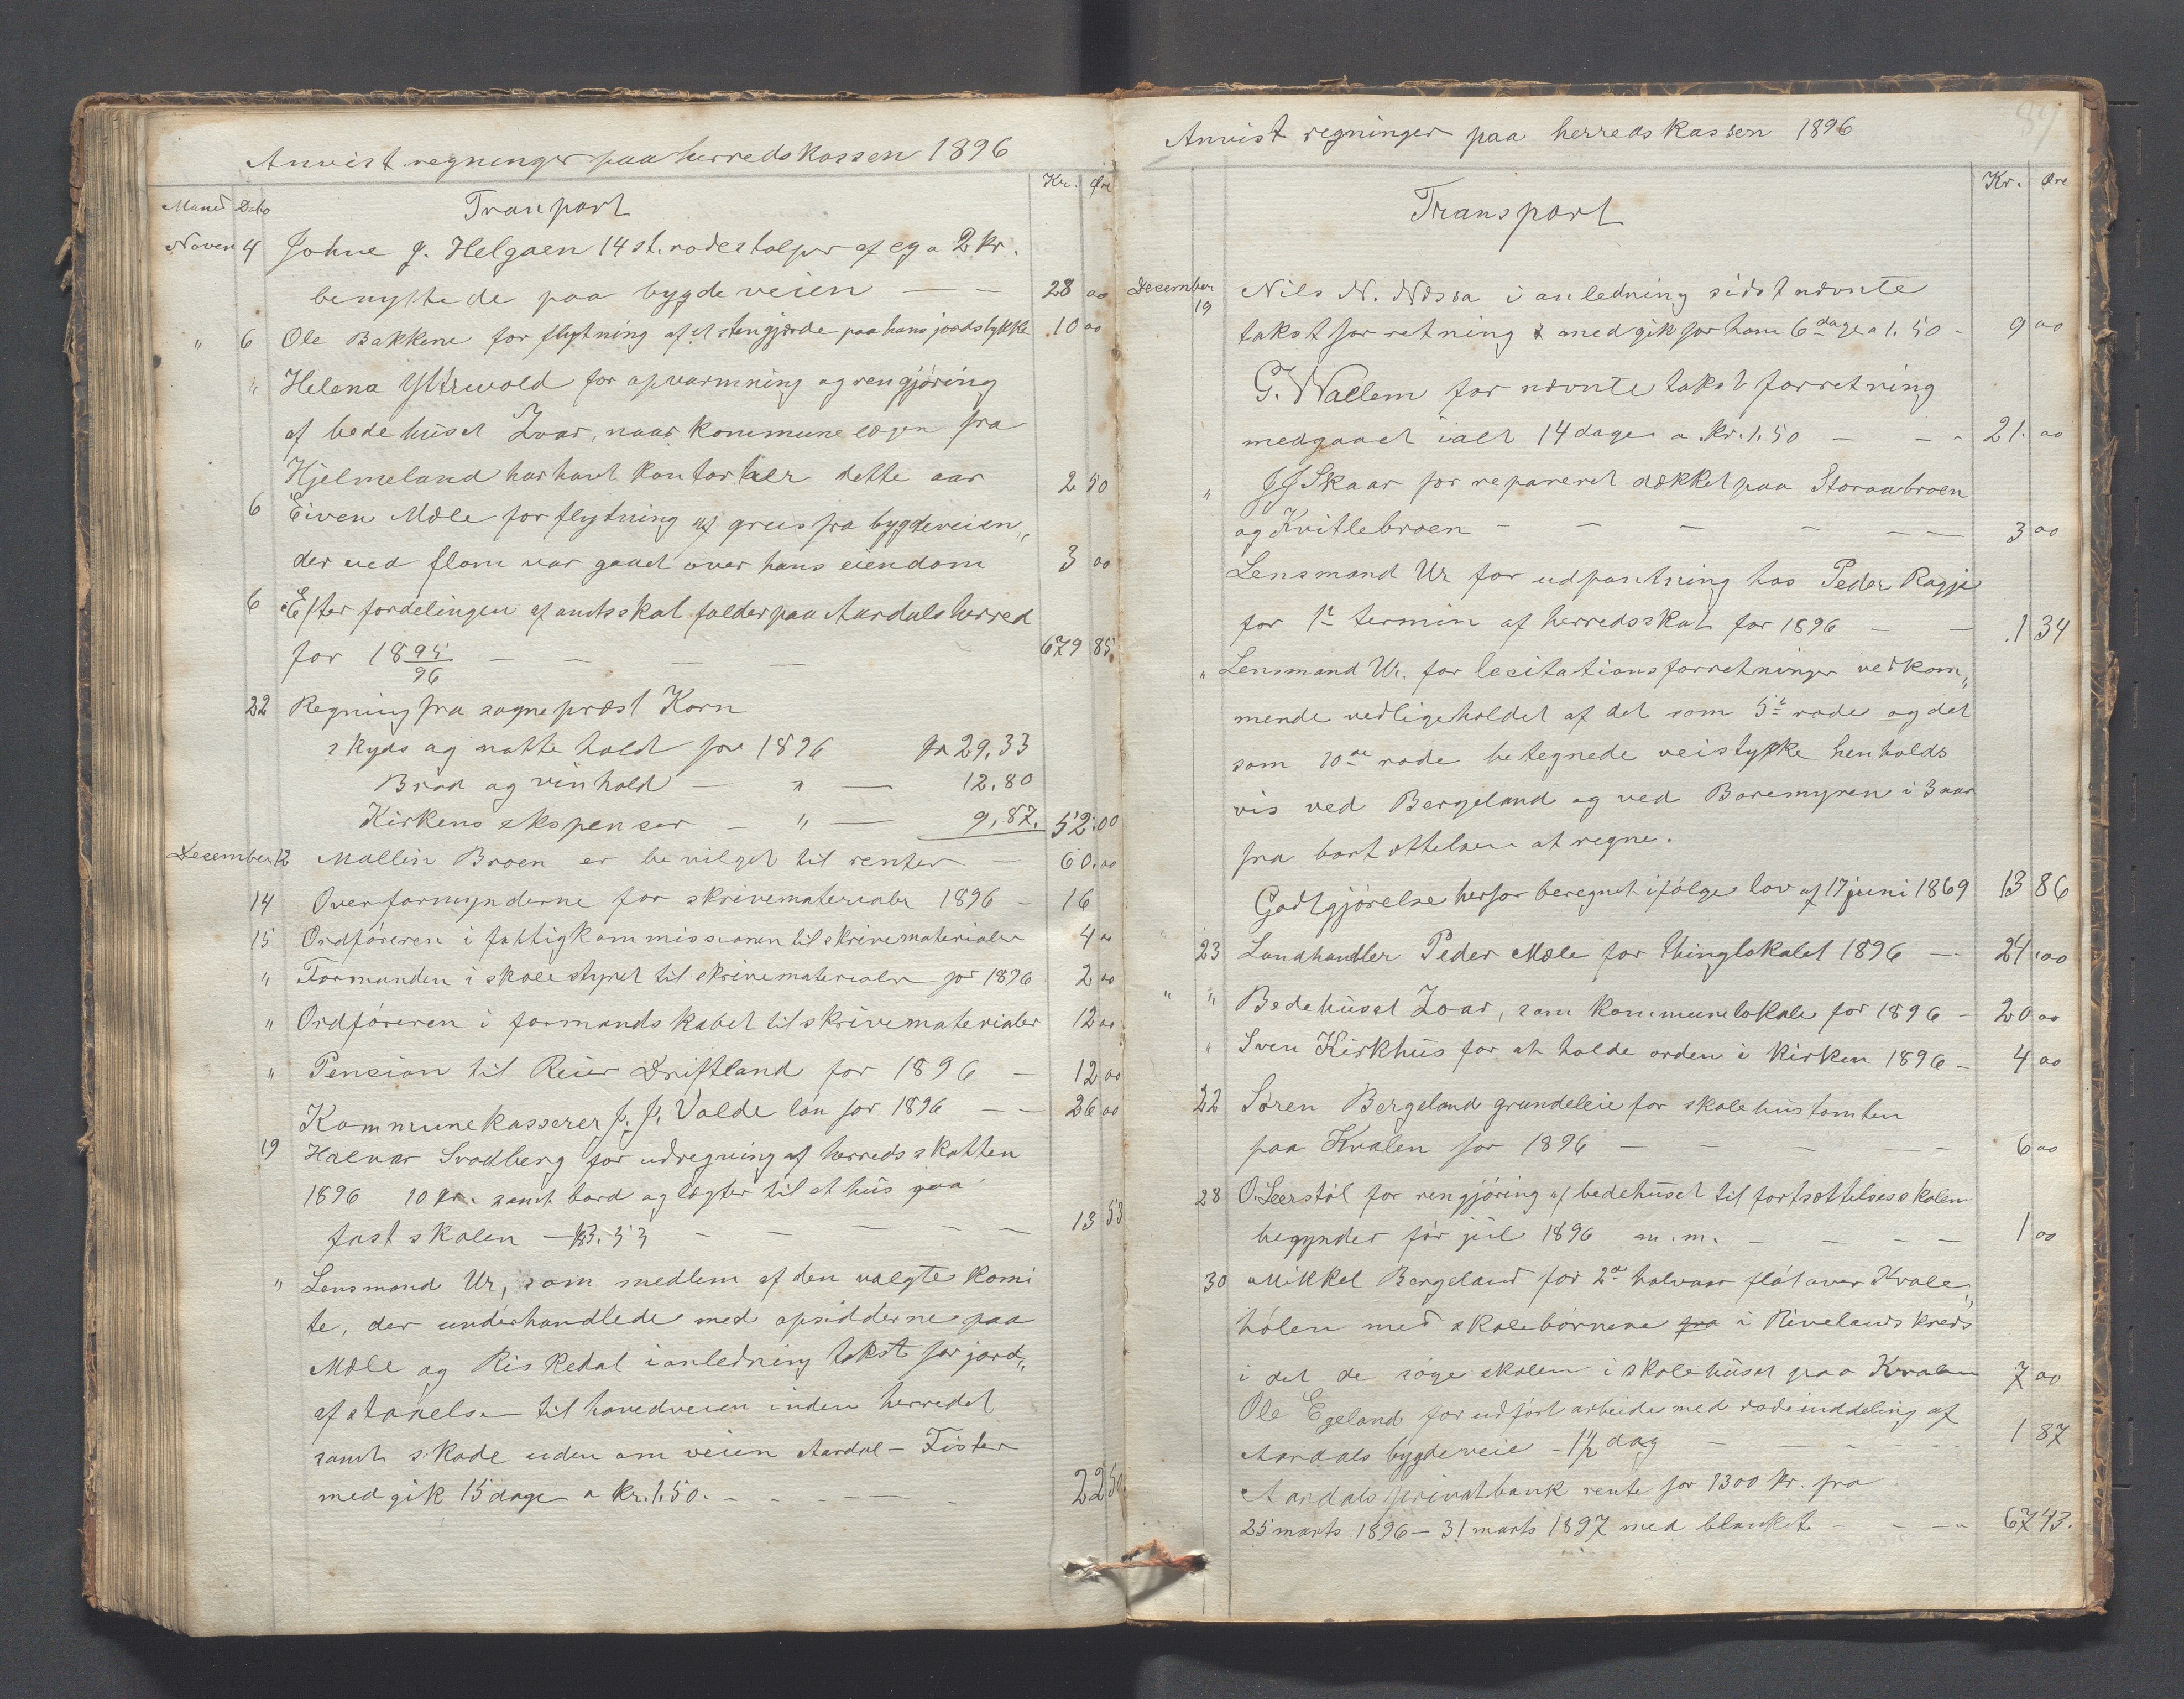 Anvist regninger paa herredskassen 1896
Kr. Øre
Maned Dato Tranport
Novem 4 Johne J. Helgaen 14 st. rodestolper af eg a 2 kr.
benyttede paa bygdeveien — — 28 00
" 6 Ole Bakkene for flytning af et stengjærde paa hans jordstykke 10 00
" Helena Yttrevold for opvarmning og rengjøring
af bedehuset Zoar, naar kommunelægen fra
Hjelmeland har havt kontor her dette aar 2 50
6 Eiven Mæle for flytning af grus fra bygdeveien,,
der ved flom var gaaet over hans eiendom 3 00
6 Efter fordelingen af amtsskat falder paa Aardals herred
for 1895/96 — — — — 679 85
22 Regning fra sogneprest Korn
skyds og nattehold for 1896 kr 29,33
Brød og vinhold — " — 12,80
Kirkens ekspenser — " — 9,87. 52.00
Desember 12 Mallin Broen er bevilget til renter — 60.00
14 Overformynderne for skrivematerialer 1896 — 16
15 Ordføreren i fattigkommissionen til skrivematerialer 4 00
" Formanden i skolestyret til skrivematerialer for 1896 2 00
" Ordføreren i formandskabet til skrivematerialer 12 00
" Pension til Reier Driftland for 1896 — 12 00
Kommunekasserer J. J. Valde løn for 1896 — — 26 00
19 Halvar Svadberg for udregning af herredsskatten
1896 10 kr. samt bord og lægter til et hus paa
fastskolen — 3.53 — — — — — 13 53
" Lensmand Ur, som medlem af den valgte komi
te, der underhandlede med opsidderne paa
Mæle og Riskedal i anledning takst for jord,,
afstaaelse til hovedveien inden herredet
samt skade uden om veien Aardal — Fister
medgik 15 dage a kr. 1.50. — — — — — 22 50
89
Anvist regninger paa herredskassen 1896
Kr. Øre
Transport
Desember 19 Nils N. Nessa i anledning sidst nævnte
takstforretning medgik for ham 6 dage a 1.50 — 9 00
G. Wallem for nævnte takstforretning
medgaaet ialt 14 dage a kr. 1.50 — — — 21. 00
" J J Skaar for repareret dækket paa Storaabroen
og Kvitlebroen — — — — — — 3 00
Lensmand Ur for udpantning hos Peder Ragje
for 1ste termin af herredsskat for 1896 — — 1 34
" Lensmand Ur. for lesitationsforretninger vedkom,,
mende vedligeholdet af det som 5te rode og det
som 10de rode betegnede veistykke henholds
vis ved Bergeland og ved Boremyren i 3 aar
fra bortsættelsen at regne.
Godtgjørelse herfor beregnet ifølge lov af 17 juni 1869 13 86
23 Landhandler Peder Mæle for thinglokalet 1896 — 24.00
" " Bedehuset Zoar, som kommunelokale for 1896 — 20 00
" Sven Kirkhus for at holde orden i kirken 1896 — 4 00
22 Søren Bergeland grundeleie for skolehustomten
paa Kvalen for 1896 — — — — — 6 00
28 O. Leerstøl for rengjøring af bedehuset til fortsættelsesskolen
begynder før jul 1896 m. m. — — — — 1 00
30 Mikkel Bergeland for 2det halvaar fløt over Kvale,,
hølen med skolebørnene fra i Rivelands kreds
i det de søge skolen i skolehuset paa Kvalen 7 00
Ole Egeland for udført arbeide med rodeinddeling af
Aardals bygdeveie — 1 1/2 dag — — — — — 1 87
Aardals privatbank rente for 1300 kr. fra
25 marts 1896 — 31 marts 1897 med blanket — — — 67 43.